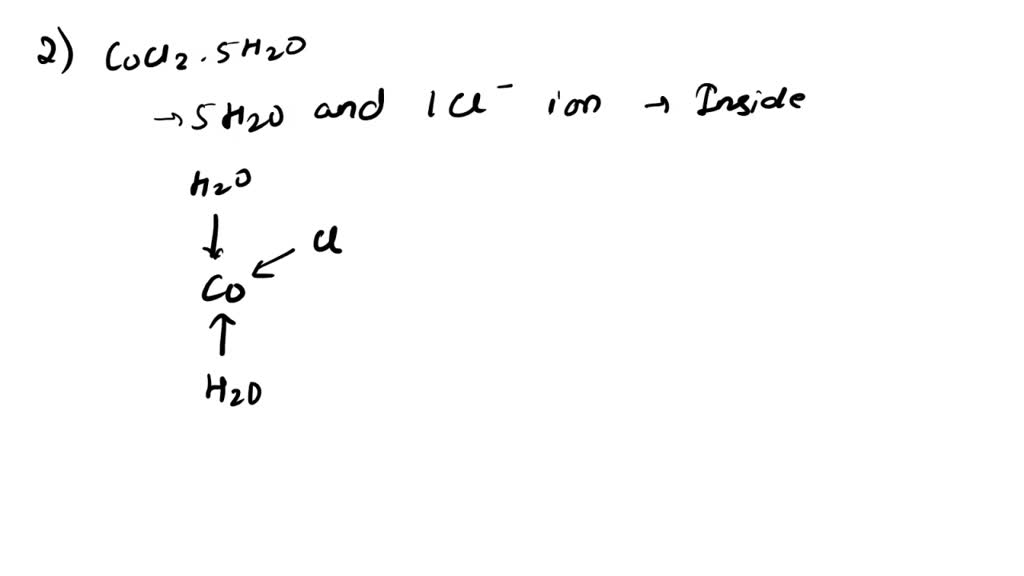 2) CoCl2 . 5H2O
→ 5H2O and 1Cl⁻ ion → Inside
H2O
Cl
Co
H2O